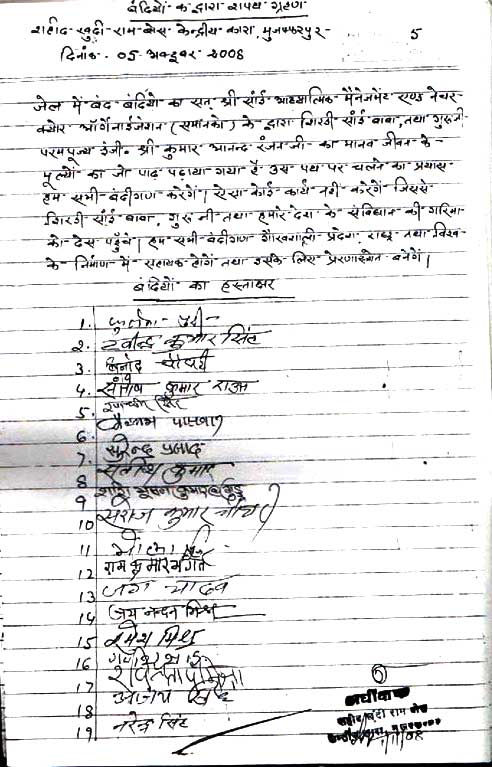 बंदियों के द्वारा शपथ ग्रहण
शहीद खुदी राम बोस केन्द्रीय कारा, मुजफ्फरपुर-
5
दिनांक- 05 अक्टूबर 2008
जेल में बंद बंदियों का सत् श्री सांई आध्यात्मिक मैनेजमेंट एण्ड नेचर-
क्योर ऑर्गेनाईजेशन (समानको) के द्वारा शिरडी सांई बाबा, तथा गुरु जी
परमपूज्य इंजी. श्री कुमार आनन्द रंजन जी का मानव जीवन के-
मूल्यों का जो पाठ पढ़ाया गया है उस पथ पर चलने का प्रयास
हम सभी बंदीगण करेंगे। ऐसा कोई कार्य नहीं करेंगे जिससे
शिरडी सांई बाबा, गुरु जी तथा हमारे देश के संविधान की गरिमा
को ठेस पहुँचे। हम सभी बंदीगण गौरवशाली प्रदेश, राष्ट्र तथा विश्व
के निर्माण में सहायक होगें तथा इसके लिए प्रेरणास्रोत बनेगें।
बंदियों का हस्ताक्षर
1.
2. रवीन्द्र कुमार सिंह
3. विनोद चौधरी
4. संतोष कुमार राउत
5.
6. कैलाश पासवान
7. सुरेन्द्र प्रसाद
8 सतीश कुमार
9
10 सरोज कुमार
11
12 राम कुमार
13 जग यादव
14 जय नन्दन मिश्र
15 रमेश मिश्र
16
17
18 अजय सिंह
19 नरेन्द्र सिंह
अधीक्षक
शहीद खुदी राम बोस